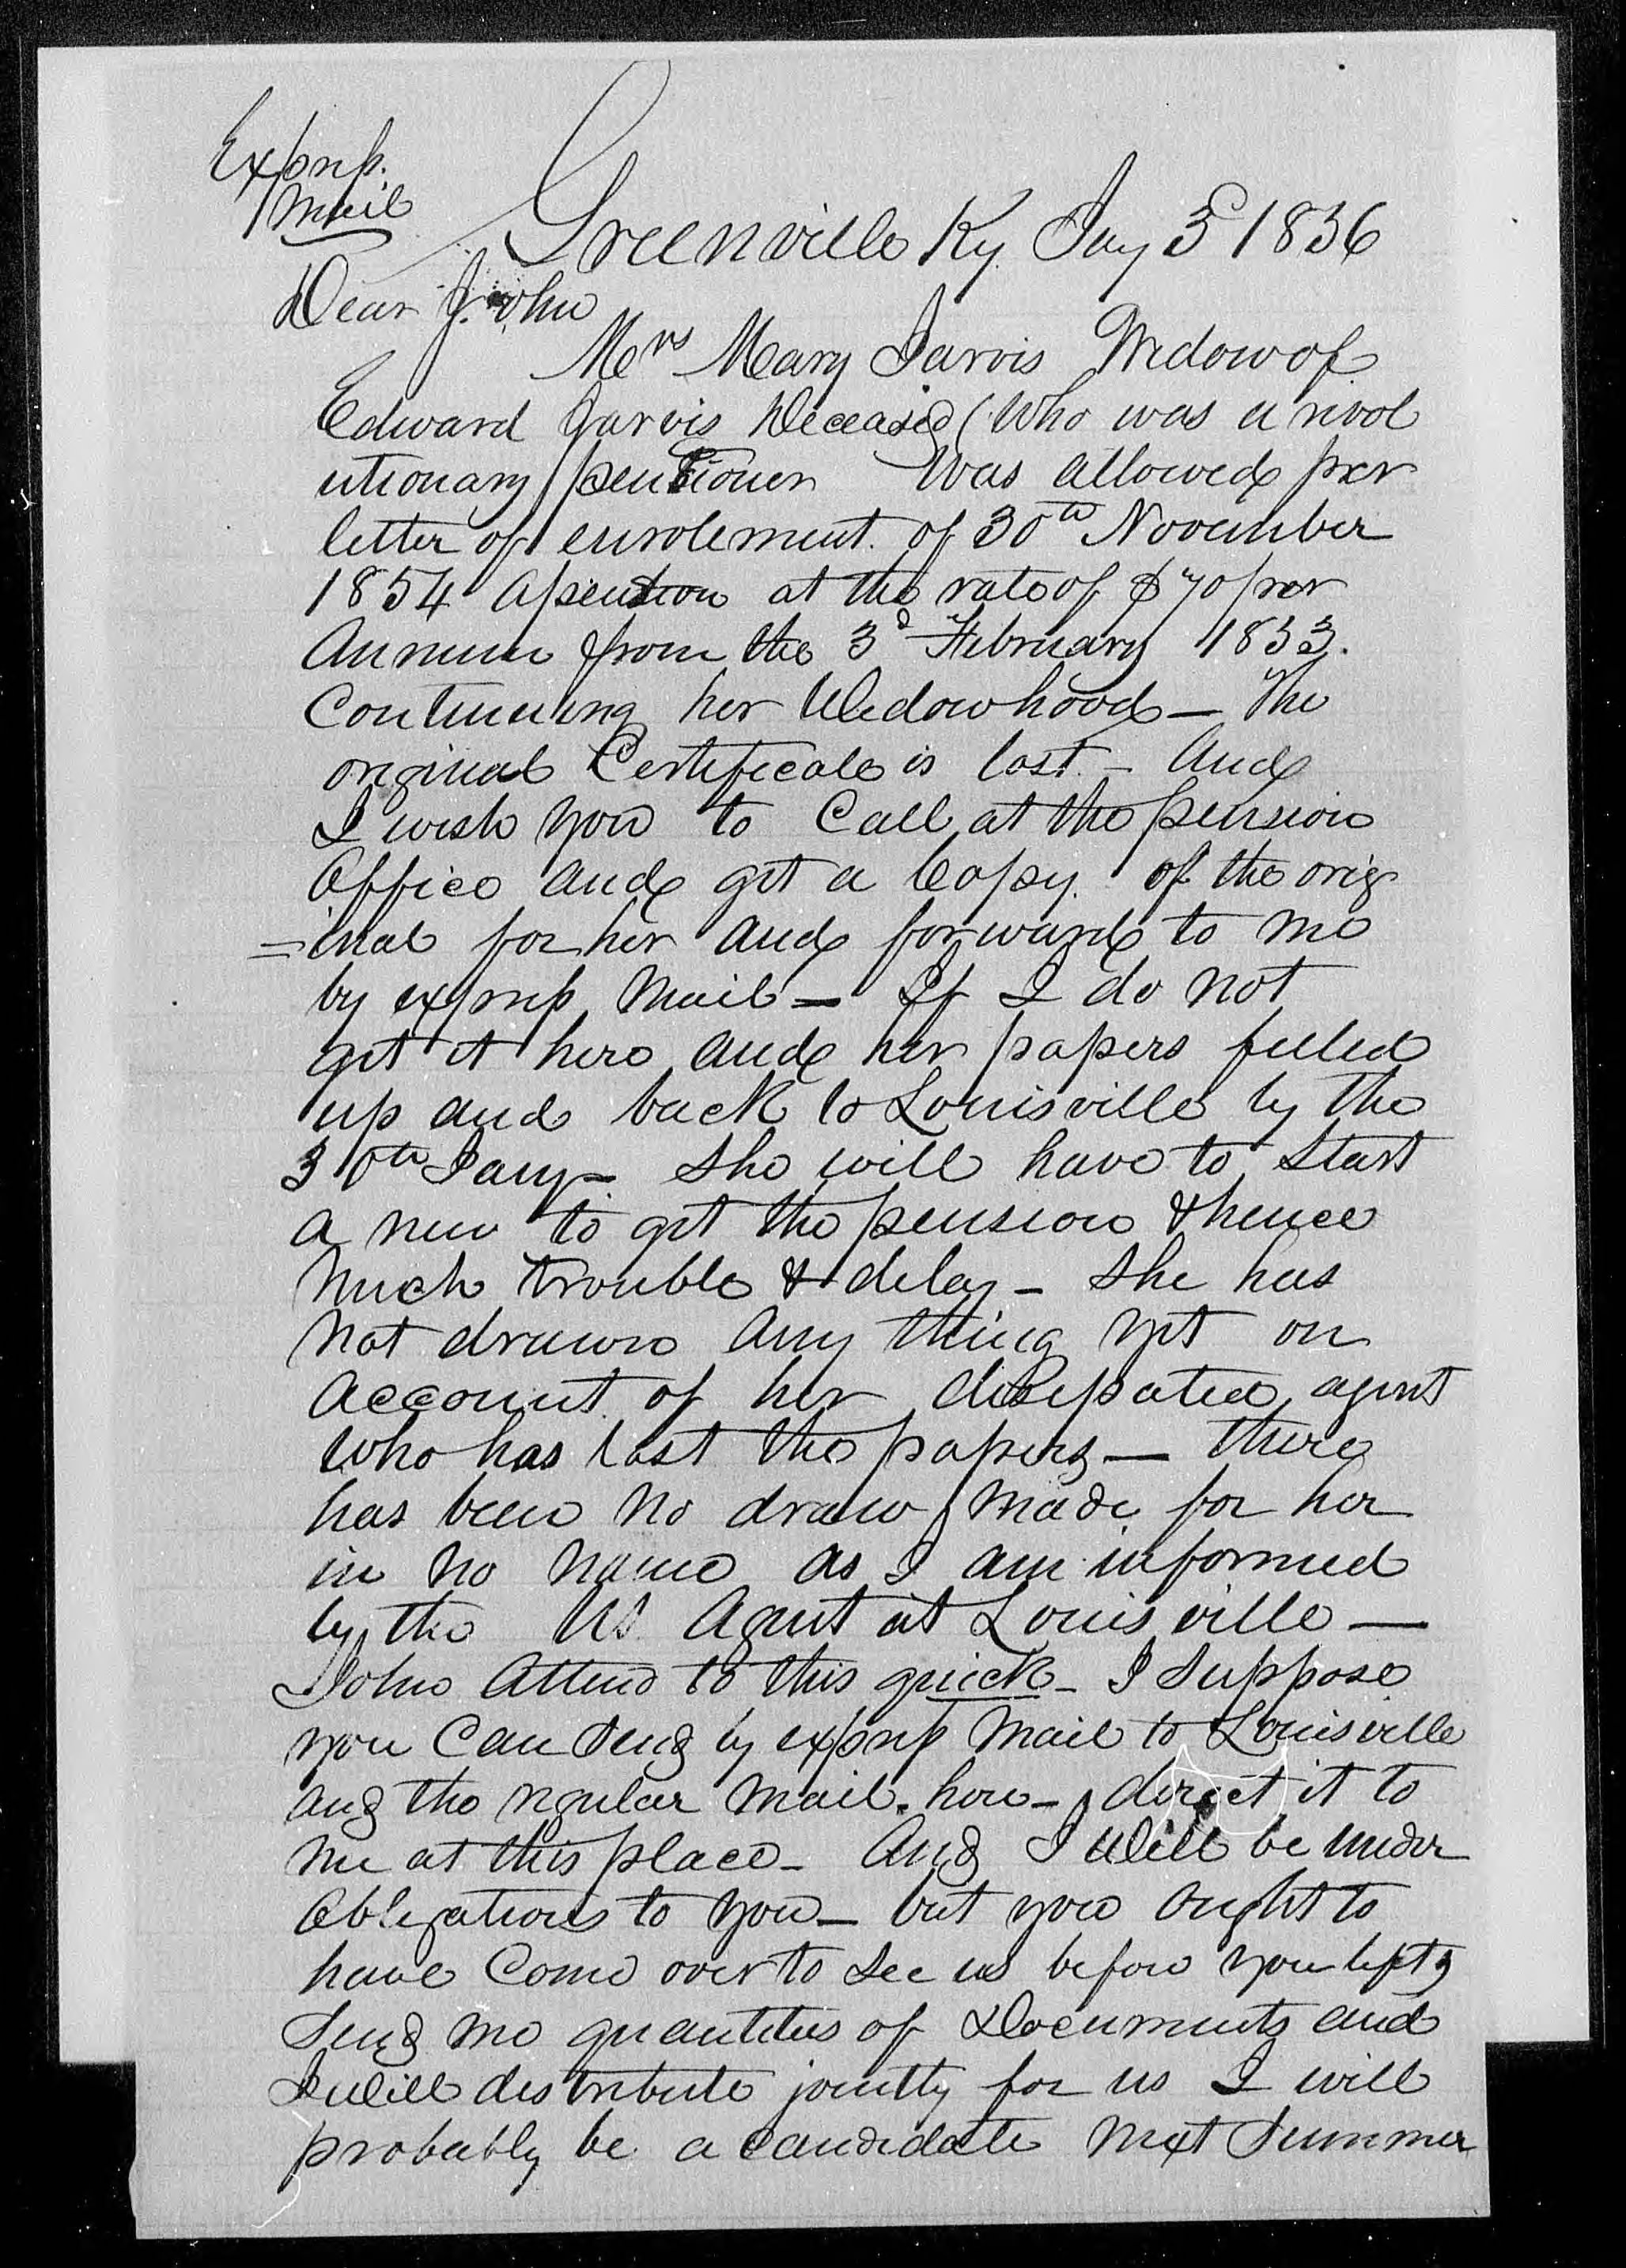 Express
Mail
Greenville Ky Jay 3d 1836
Dear John
Mrs Mary Jarvis Widow of
Edward Jarvis Deceased (Who was a rivol
utionary pentioner Was allowed per
letter of enrolement. of 30th November
1854 a pention at the rate of $70 per
Annum from the 3d February 1833.
Continuing her Widowhood — The
original Certificate is lost — And
I wish you to Call at the pension
Office and get a Copy. of the orig
=inal for her and forward to me
by express Mail — If I do not
get it here and her papers filled
up and back to Louisville by the
30th Jany — She will have to Start
a new to get the pension & hence
Much trouble & delay — She has
not drawn any thing yet on
account of her dissipated agent
who has lost the papers — there
has been no draw made for her
in no name as I am informed
by the US Agent at Louisville —
John Attend to this quick — I Suppose
you Can Send by express Mail to Louisville
and the regular Mail. here — direct it to
me at this place — And I Will be under
Obligations to you — but you ought to
have Come over to See us before you left,
Send me quantities of Documents and
I will distribute jointly for us I will
probably be a Candidate next Summer